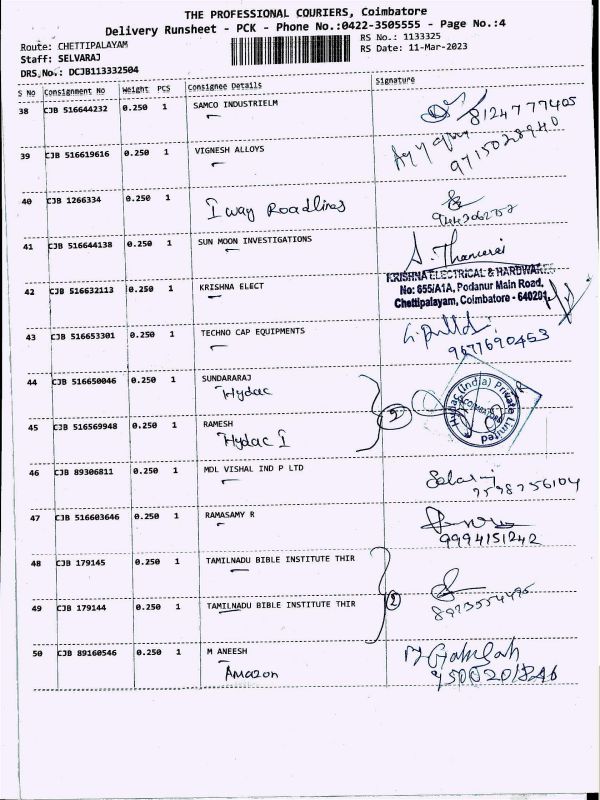 THE PROFESSIONAL COURIERS, Coimbatore
Delivery Runsheet - PCK - Phone No.:0422-3505555 - Page No.:4
Route: CHETTIPALAYAM
RS No.: 1133325
Staff: SELVARAJ
RS Date: 11-Mar-2023
DRS.No.: DCJB113332504
S No Consignment No Weight PCS Consignee Details Signature
38 CJB 516644232 0.250 1 SAMCO INDUSTRIELM
8124777405
39 CJB 516619616 0.250 1 VIGNESH ALLOYS
9715028940
40 CJB 1266334 0.250 1 I way Roadlines
41 CJB 516644138 0.250 1 SUN MOON INVESTIGATIONS
42 CJB 516632113 0.250 1 KRISHNA ELECT
KRISHNA ELECTRICAL & HARDWARES
No: 655/A1A, Podanur Main Road,
Chettipalayam, Coimbatore - 640201
43 CJB 516653301 0.250 1 TECHNO CAP EQUIPMENTS
9677690463
44 CJB 516650046 0.250 1 SUNDARARAJ
Hydac
Hydac (India) Private Limited
COIMBATORE
45 CJB 516569948 0.250 1 RAMESH
Hydac I
46 CJB 89306811 0.250 1 MDL VISHAL IND P LTD
47 CJB 516603646 0.250 1 RAMASAMY R
9994151242
48 CJB 179145 0.250 1 TAMILNADU BIBLE INSTITUTE THIR
2
49 CJB 179144 0.250 1 TAMILNADU BIBLE INSTITUTE THIR
50 CJB 89160546 0.250 1 M ANEESH
Amazon